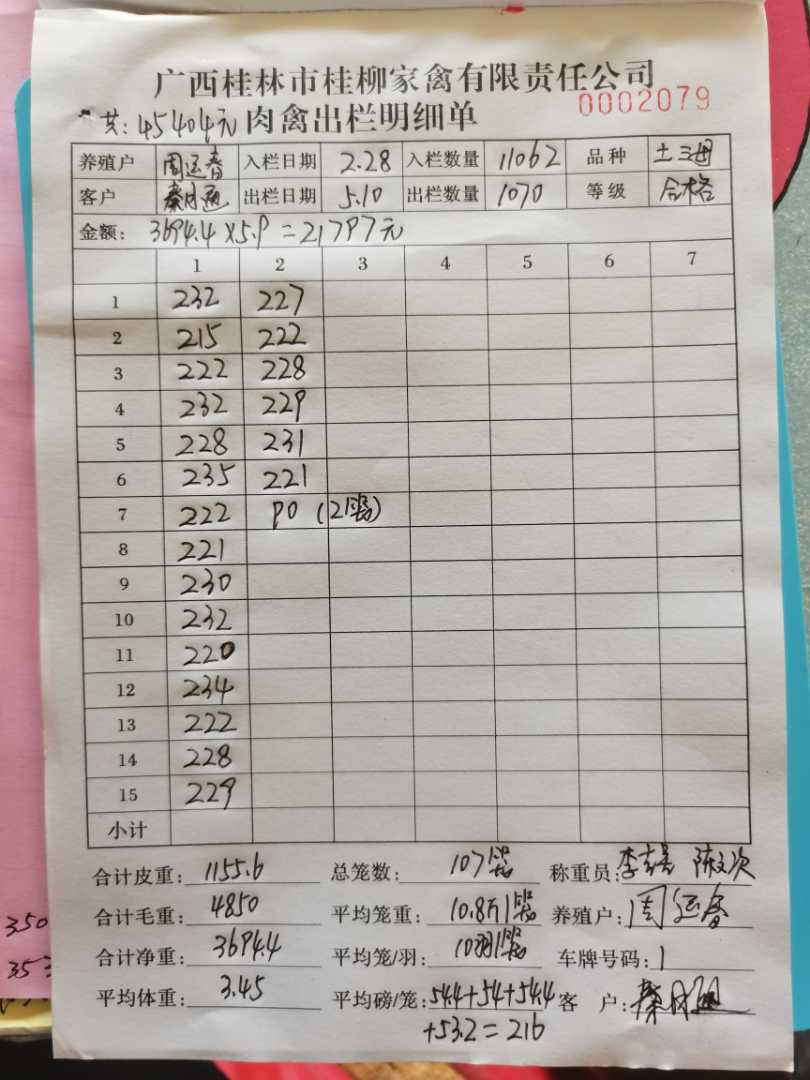 广西桂林市桂柳家禽有限责任公司
共: 45404元 肉禽出栏明细单 0002079
养殖户 周运春 入栏日期 2.28 入栏数量 11062 品种 土三母
客户 出栏日期 5.10 出栏数量 1070 等级 合格
金额: 3694.4×5.9=21797元
1 2 3 4 5 6 7
1 232 227
2 215 222
3 222 228
4 232 229
5 228 231
6 235 221
7 222 90 (2笼)
8 221
9 230
10 232
11 220
12 234
13 222
14 228
15 229
小计
合计皮重: 1155.6 总笼数: 107笼 称重员:
合计毛重: 4850 平均笼重: 10.8斤/笼 养殖户: 周运春
合计净重: 3694.4 平均笼/羽: 10羽/笼 车牌号码: 1
平均体重: 3.45 平均磅/笼: 54.4+54+54.4 客 户:
+53.2=216
350
353